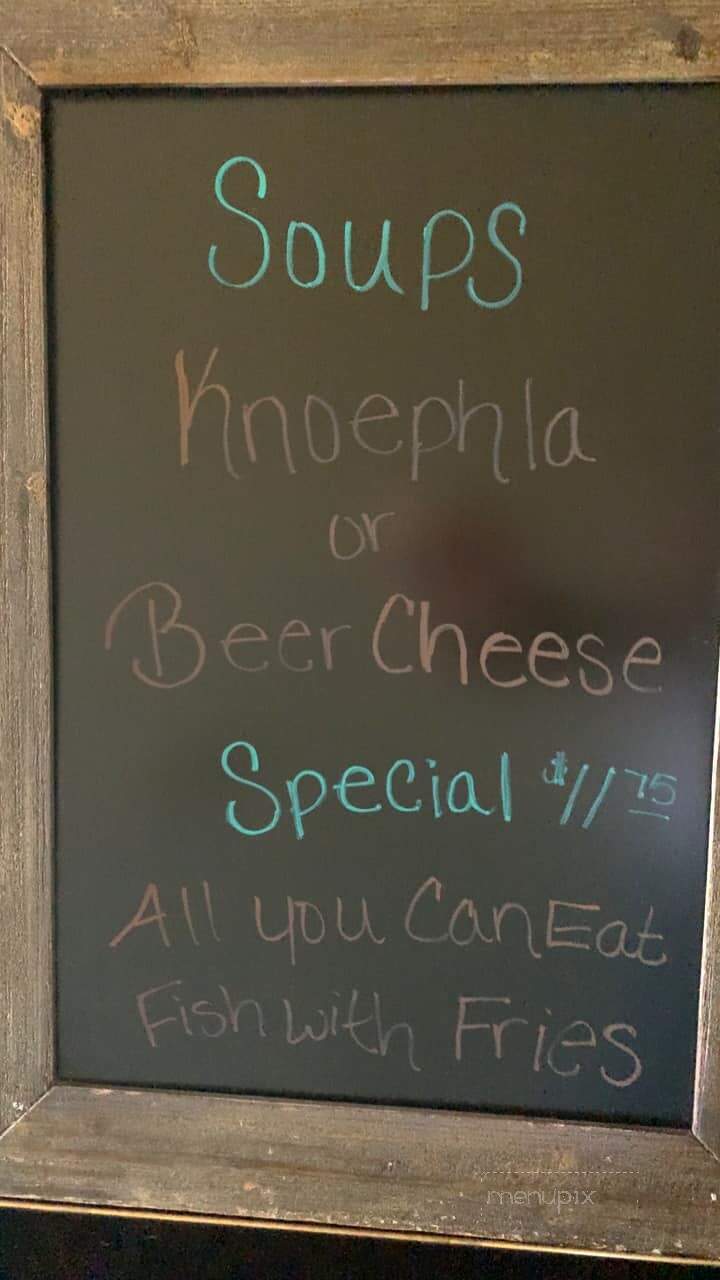 Soups
Knoephla
or
Beer Cheese
Special $11.75
All you Can Eat
Fish with Fries
menupix